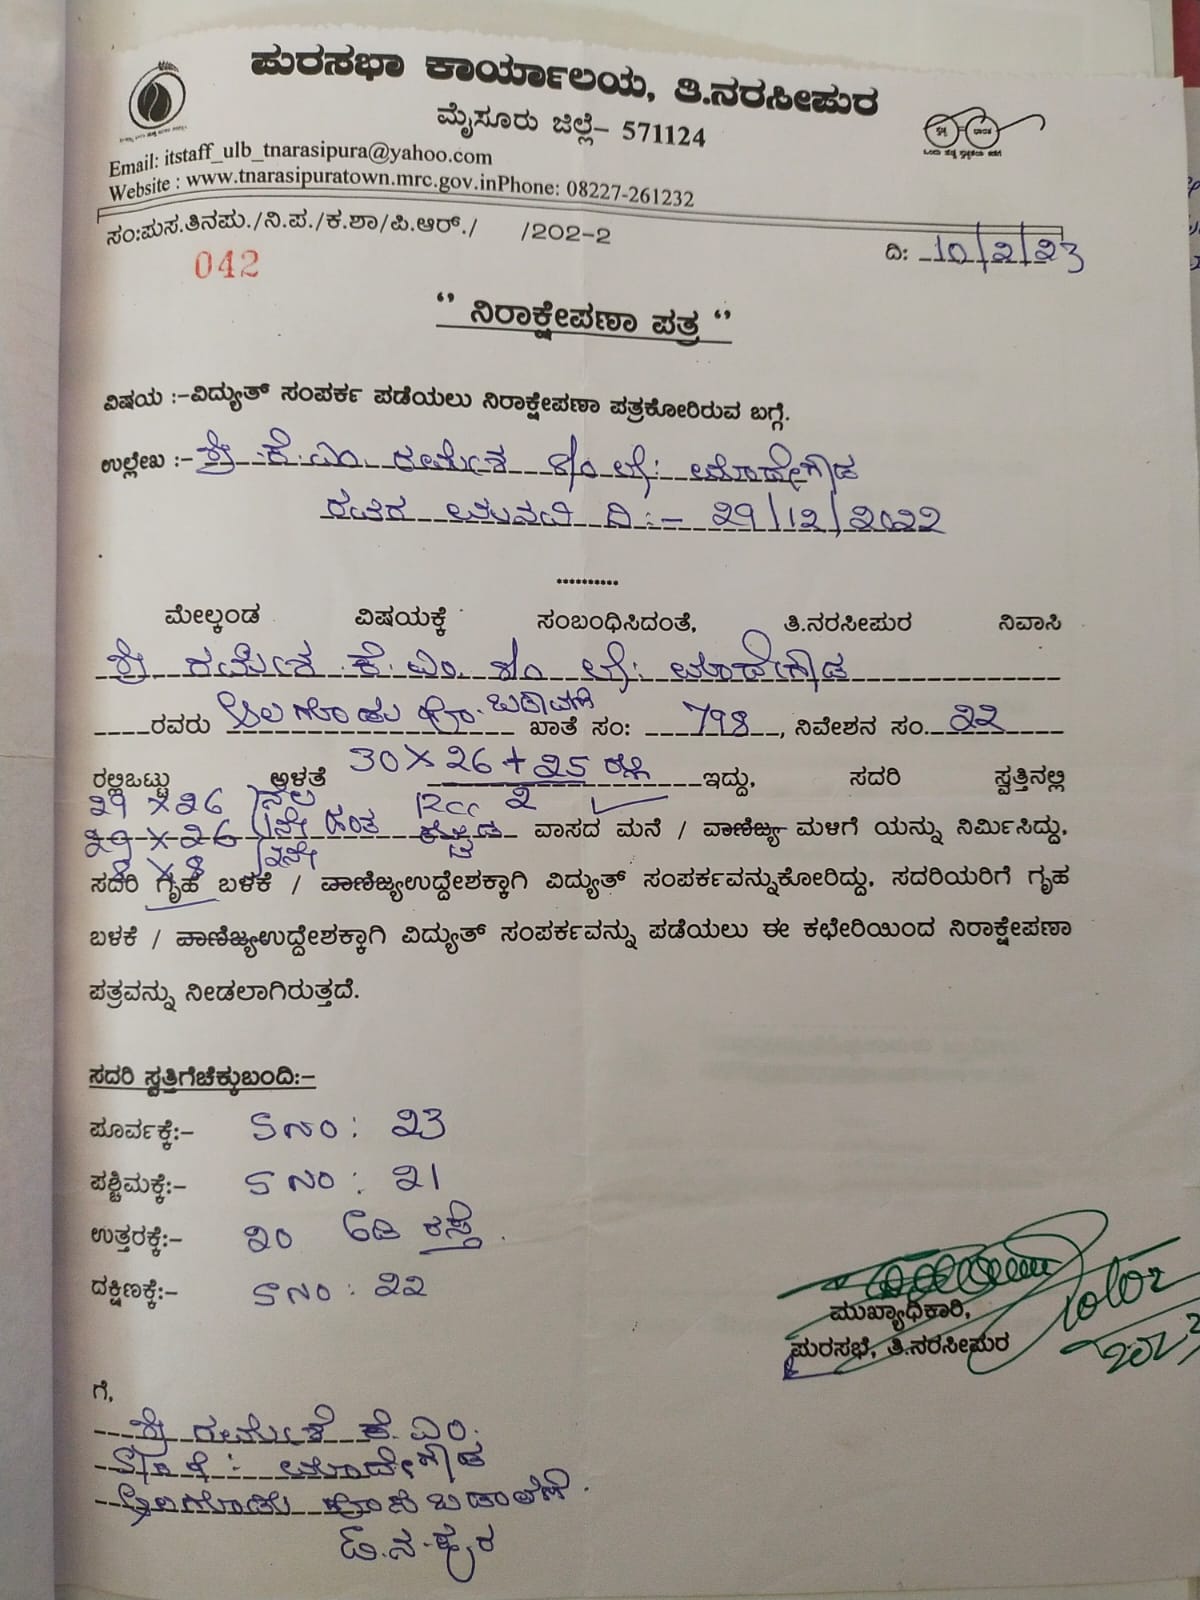 ಪುರಸಭಾ ಕಾರ್ಯಾಲಯ, ತಿ.ನರಸೀಪುರ
ಮೈಸೂರು ಜಿಲ್ಲೆ- 571124
Email: itstaff_ulb_tnarasipura@yahoo.com
Website : www.tnarasipuratown.mrc.gov.inPhone: 08227-261232
ಸಂ:ಪುಸ.ತಿನಪು./ನಿ.ಪ./ಕ.ಶಾ/ಪಿ.ಆರ್./ /202-2
ದಿ: 10/2/23
042
" ನಿರಾಕ್ಷೇಪಣಾ ಪತ್ರ "
ವಿಷಯ :-ವಿದ್ಯುತ್ ಸಂಪರ್ಕ ಪಡೆಯಲು ನಿರಾಕ್ಷೇಪಣಾ ಪತ್ರಕೋರಿರುವ ಬಗ್ಗೆ.
ಉಲ್ಲೇಖ :- ಶ್ರೀ ಕೆ.ಎಂ. ರಮೇಶ S/o ಲೇ: ಮಾದೇಗೌಡ
ರವರ ಮನವಿ ದಿ:- 29/12/2022
..........
ಮೇಲ್ಕಂಡ ವಿಷಯಕ್ಕೆ ಸಂಬಂಧಿಸಿದಂತೆ, ತಿ.ನರಸೀಪುರ ನಿವಾಸಿ
ಶ್ರೀ ರಮೇಶ ಕೆ.ಎಂ. S/o ಲೇ: ಮಾದೇಗೌಡ
ರವರು ಬಡಾವಣೆ ಖಾತೆ ಸಂ: 798, ನಿವೇಶನ ಸಂ. 22
ರಲ್ಲಿಒಟ್ಟು ಅಳತೆ 30 X 26 + 25 ರಲ್ಲಿ ಇದ್ದು, ಸದರಿ ಸ್ವತ್ತಿನಲ್ಲಿ
29 X 26 ನೆಲ Rcc 2
29 X 26 1ನೇ ಹಂತ ಕಟ್ಟಡ ವಾಸದ ಮನೆ / ವಾಣಿಜ್ಯ ಮಳಿಗೆ ಯನ್ನು ನಿರ್ಮಿಸಿದ್ದು,
8 X 8 2ನೇ
ಸದರಿ ಗೃಹ ಬಳಕೆ / ವಾಣಿಜ್ಯಉದ್ದೇಶಕ್ಕಾಗಿ ವಿದ್ಯುತ್ ಸಂಪರ್ಕವನ್ನುಕೋರಿದ್ದು, ಸದರಿಯರಿಗೆ ಗೃಹ
ಬಳಕೆ / ವಾಣಿಜ್ಯಉದ್ದೇಶಕ್ಕಾಗಿ ವಿದ್ಯುತ್ ಸಂಪರ್ಕವನ್ನು ಪಡೆಯಲು ಈ ಕಛೇರಿಯಿಂದ ನಿರಾಕ್ಷೇಪಣಾ
ಪತ್ರವನ್ನು ನೀಡಲಾಗಿರುತ್ತದೆ.
ಸದರಿ ಸ್ವತ್ತಿಗೆಚೆಕ್ಕುಬಂದಿ:-
ಪೂರ್ವಕ್ಕೆ:- S ನಂ : 23
ಪಶ್ಚಿಮಕ್ಕೆ:- S ನಂ : 21
ಉತ್ತರಕ್ಕೆ:- 20 ಅಡಿ ರಸ್ತೆ.
ದಕ್ಷಿಣಕ್ಕೆ:- S ನಂ : 22
ಮುಖ್ಯಾಧಿಕಾರಿ,
ಪುರಸಭೆ, ತಿ.ನರಸೀಪುರ
ಗೆ,
ಶ್ರೀ ರಮೇಶ ಕೆ.ಎಂ.
S/o ಲೇ: ಮಾದೇಗೌಡ
ಬಡಾವಣೆ.
ತಿ.ನ.ಪುರ